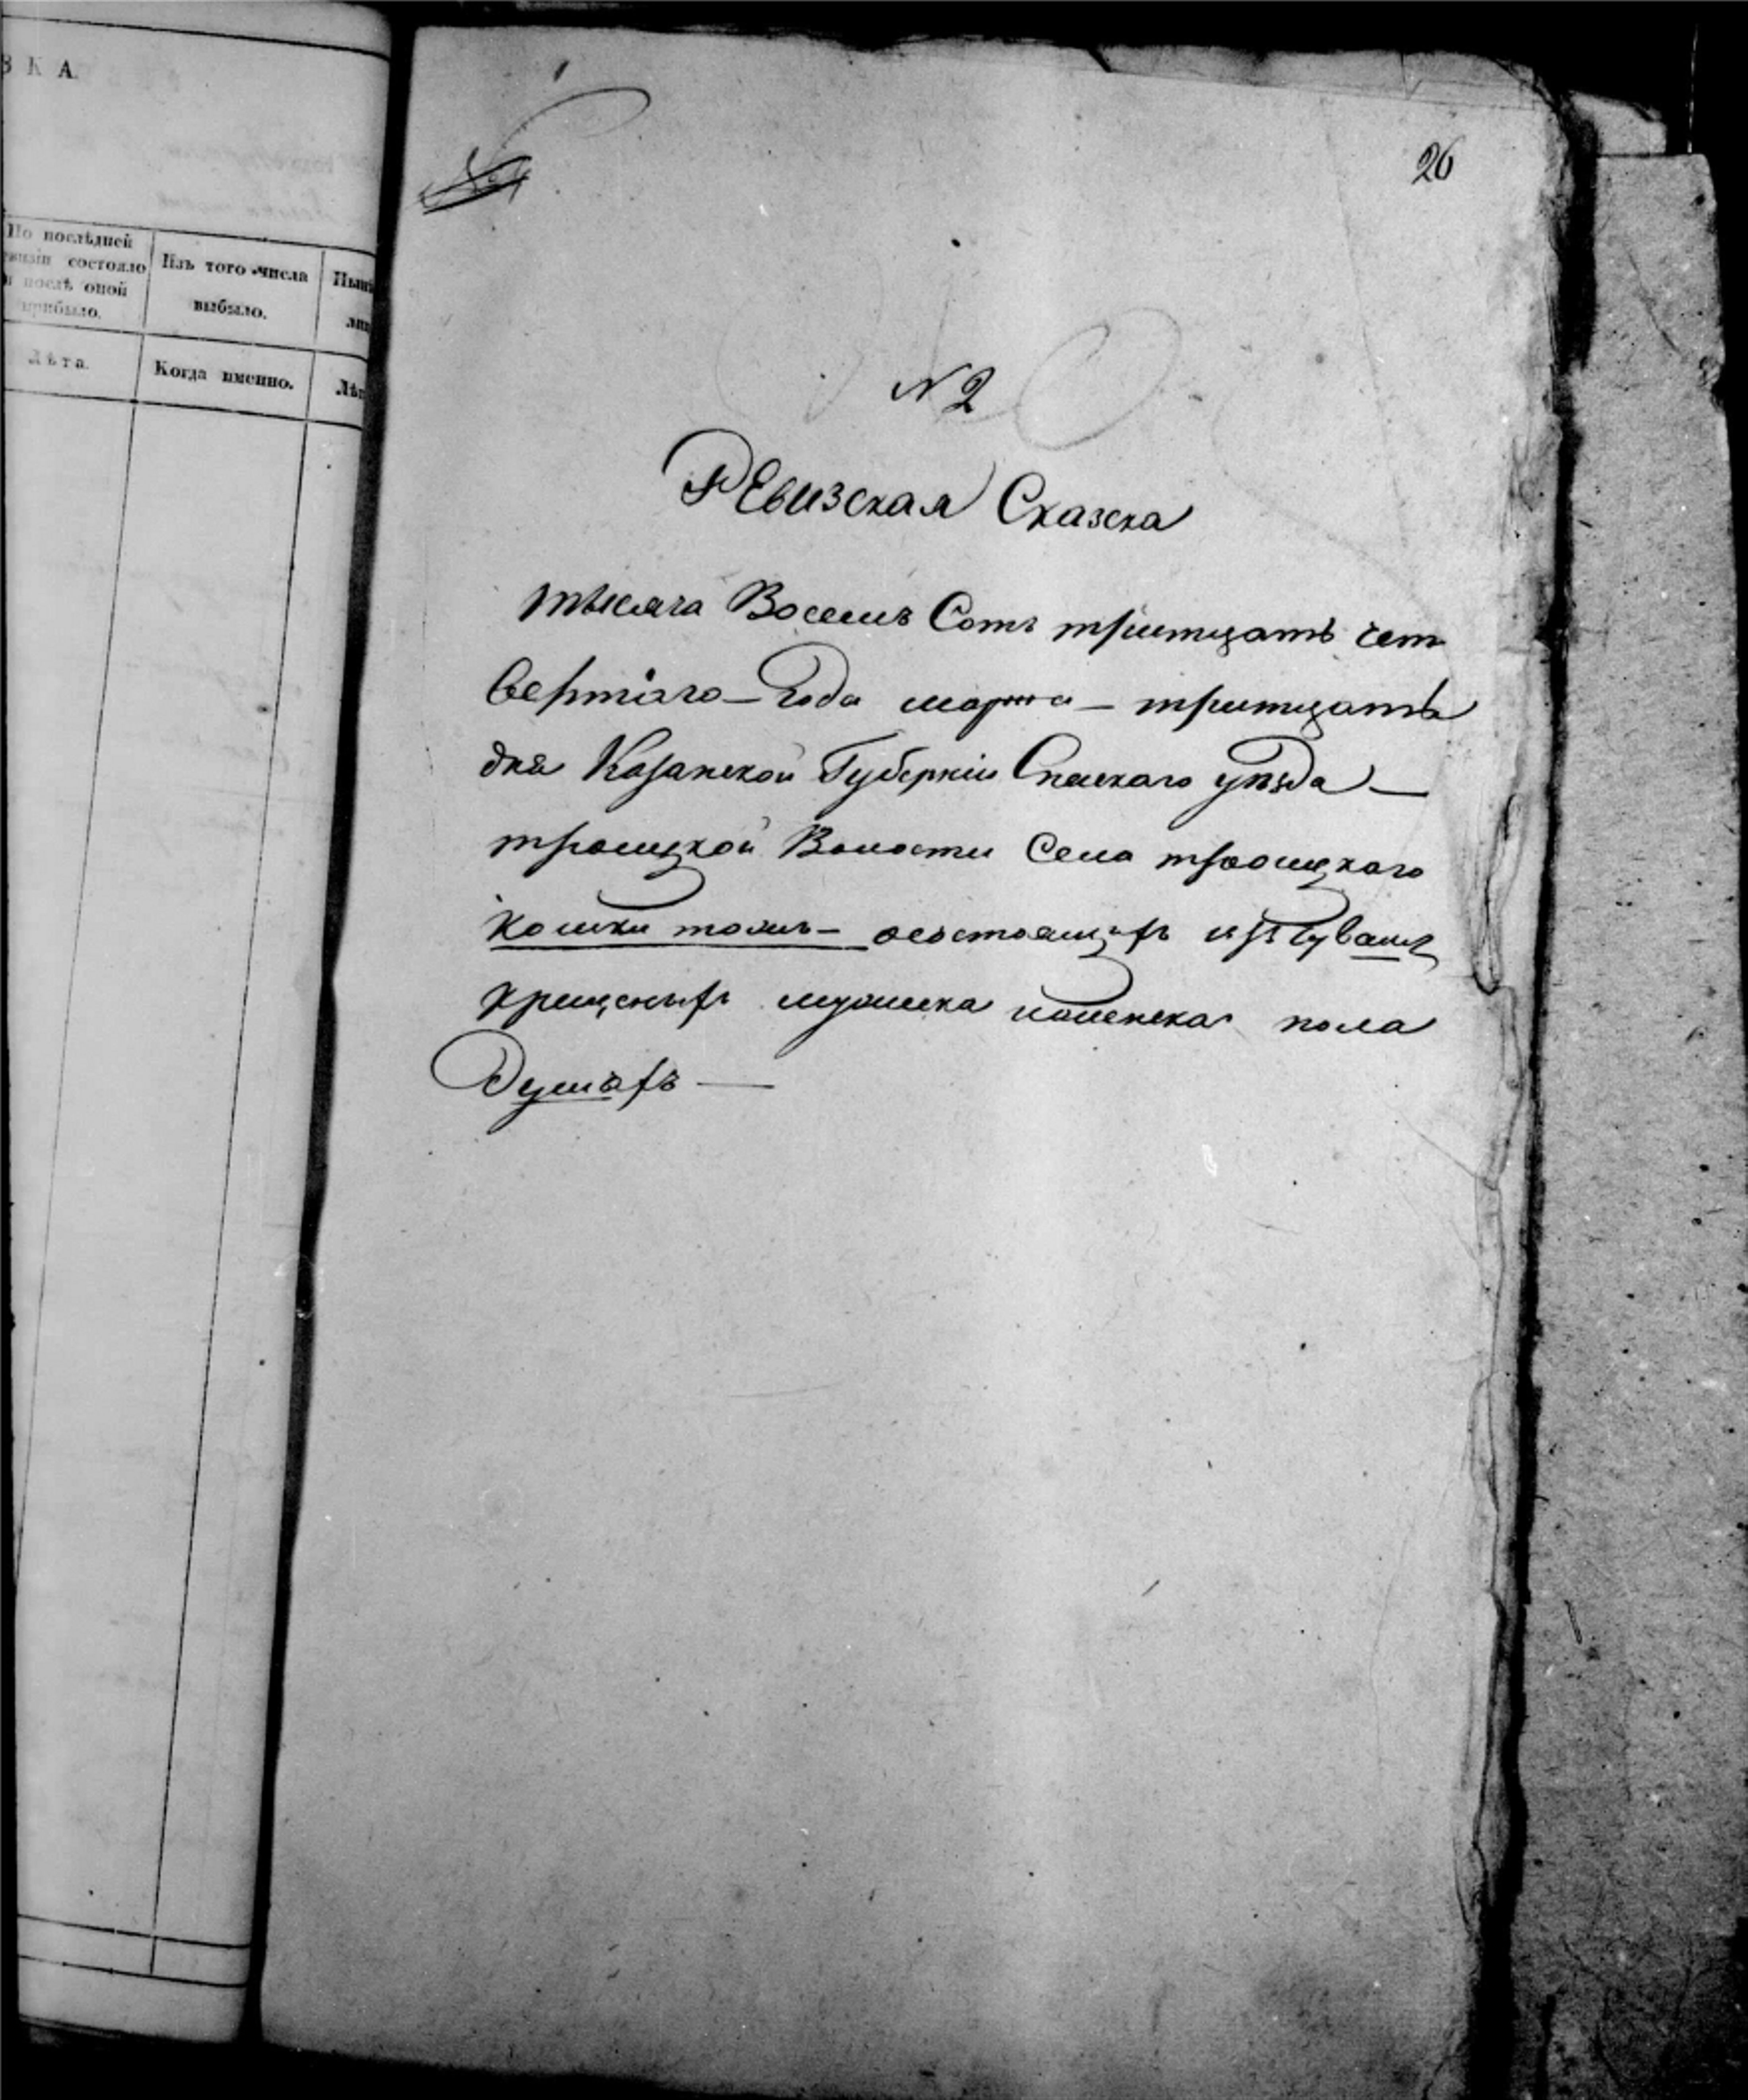 З К А.
По послѣдней
ревизіи состояло
и послѣ оной
прибыло.
Изъ того числа
выбыло.
Лѣта.
Когда именно.
26
N 2
Ревизская Сказска
тысяча Восемъ Сотъ тритцать чет
вертаго – года марта – тритцать
дня Казанской Губерніи Спаскаго уѣзда –
троицкой Волости Села троицкаго
кошки тожъ – состоящехъ изъ Чувашъ
крещеныхъ мужеска иженска пола
Душахъ —